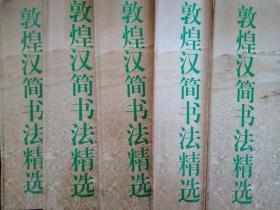 敦煌汉简书法精选
敦煌汉简书法精选
敦煌汉简书法精选
敦煌汉简书法精选
敦煌汉简书法精选